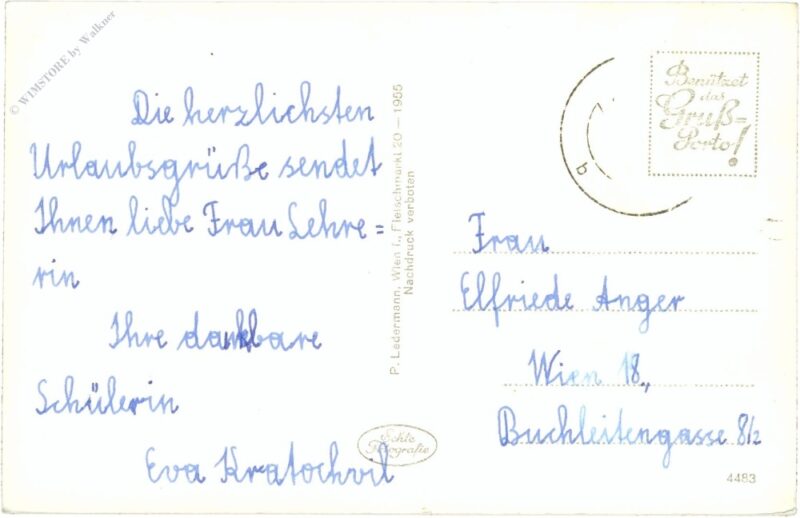 © W1MSTORE by Walkner
Die herzlichsten
Urlaubsgrüße sendet
Ihnen liebe Frau Lehre=
rin
Ihre dankbare
Schülerin
Eva Kratochvil
P. Ledermann, Wien I., Fleischmarkt 20 — 1955
Nachdruck verboten
Echte
Fotografie
b
Benützet
das
Gruß=
Porto!
Frau
Elfriede Anger
Wien 18.,
Buchleitengasse 8/2
4483